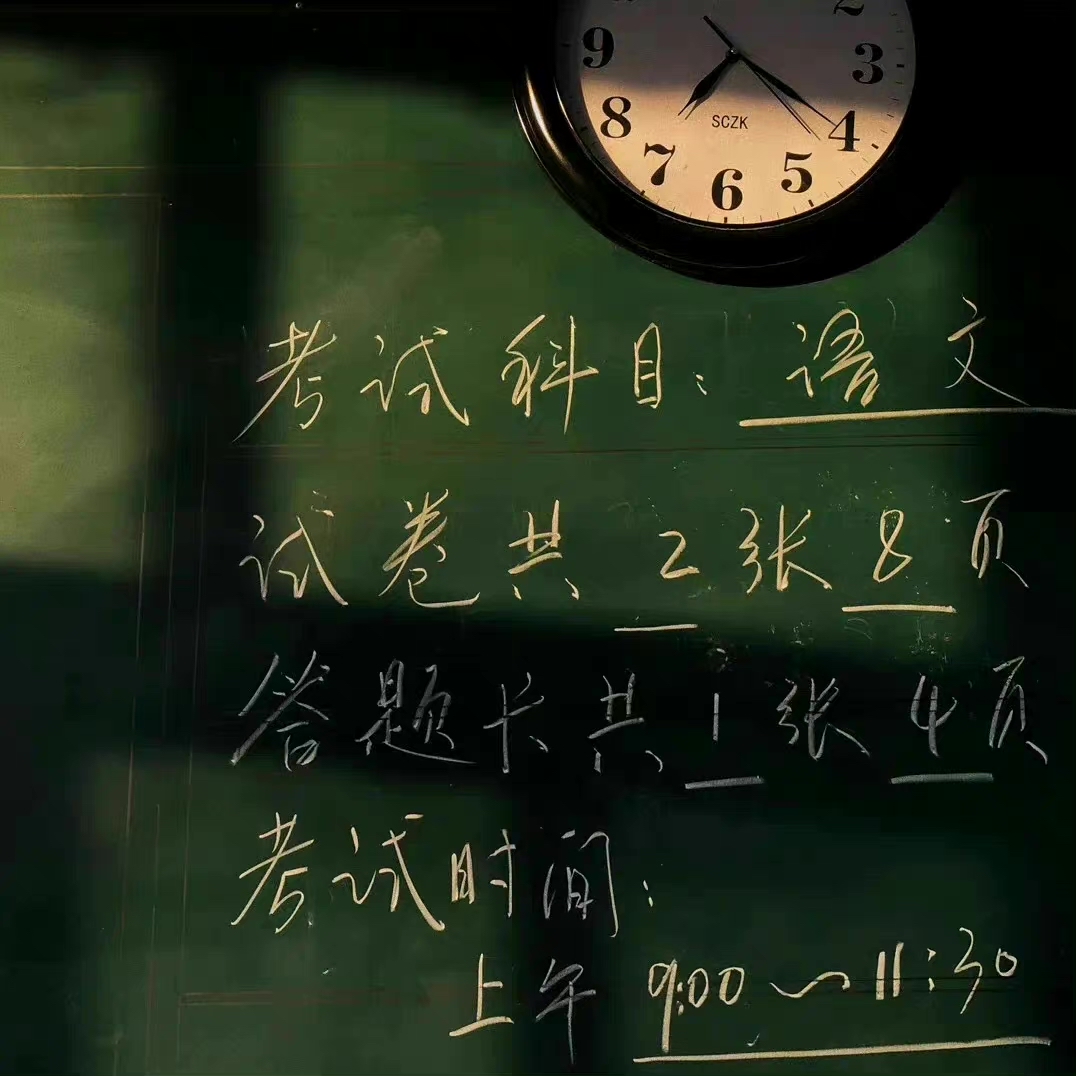 2
9 3
8 4
SCZK
7 5
6
考试科目：语文
试卷共 2 张 8 页
答题卡共 1 张 4 页
考试时间：
上午 9:00～11:30